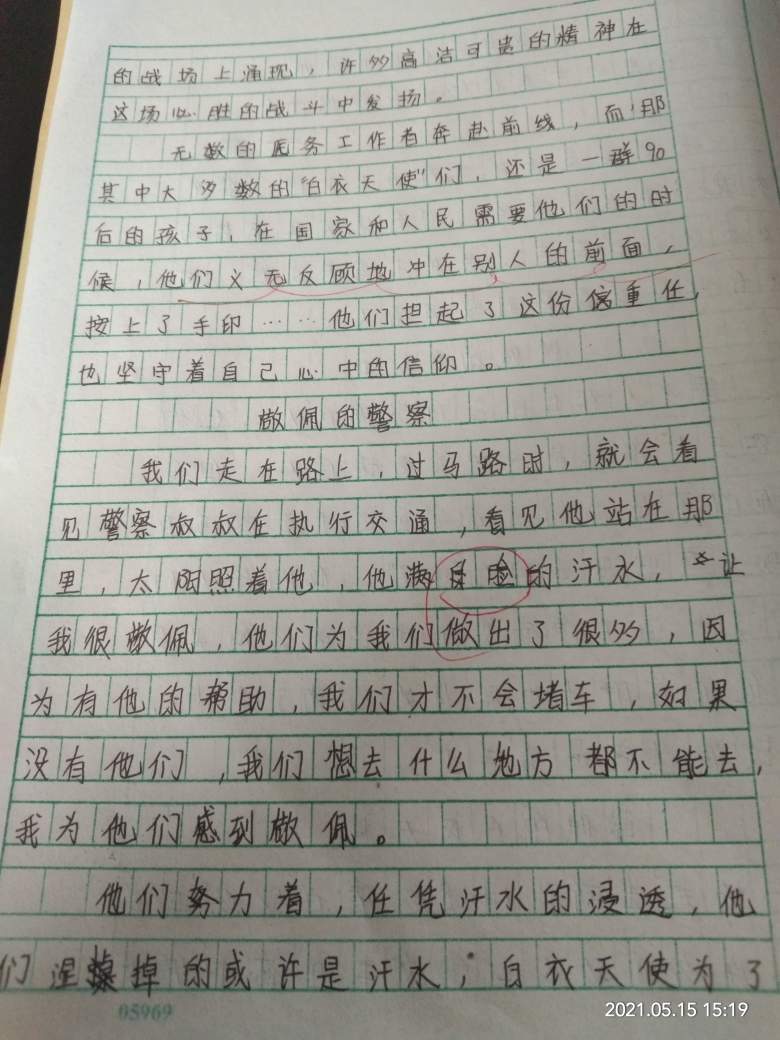 的战场上涌现，许多高洁可贵的精神在
这场必胜的战斗中发扬。
无数的医务工作者奔赴前线，而那
其中大多数的“白衣天使”们，还是一群90
后的孩子，在国家和人民需要他们的时
候，他们义无反顾地冲在别人的前面，
按上了手印……他们担起了这份重任，
也坚守着自己心中的信仰。
敬佩的警察
我们走在路上，过马路时，就会看
见警察叔叔在执行交通，看见他站在那
里，太阳照着他，他满脸的汗水，让
我很敬佩，他们为我们做出了很多，因
为有他的帮助，我们才不会堵车，如果
没有他们，我们想去什么地方都不能去，
我为他们感到敬佩。
他们努力着，任凭汗水的浸透，他
们湿掉的或许是汗水；白衣天使为了
05969
2021.05.15 15:19